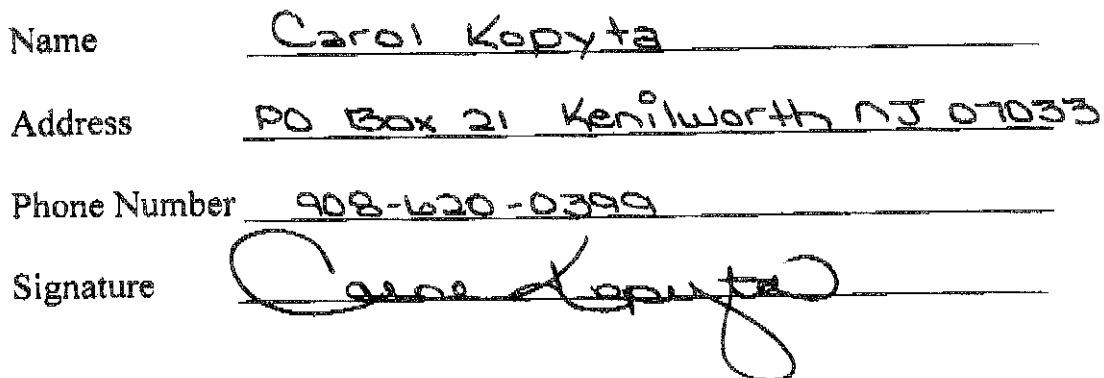 Name Carol Kopyta
Address PO Box 21 Kenilworth NJ 07033
Phone Number 908-620-0399
Signature Carol Kopyta